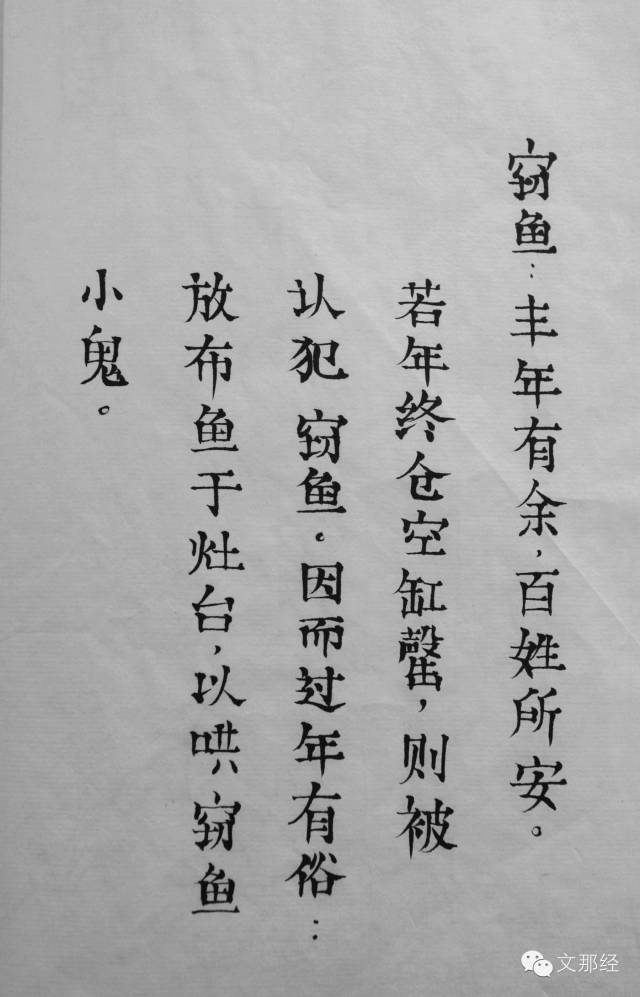 窃鱼：丰年有余，百姓所安。
若年终仓空缸罄，则被
认犯窃鱼。因而过年有俗：
放布鱼于灶台，以哄窃鱼
小鬼。
文那经